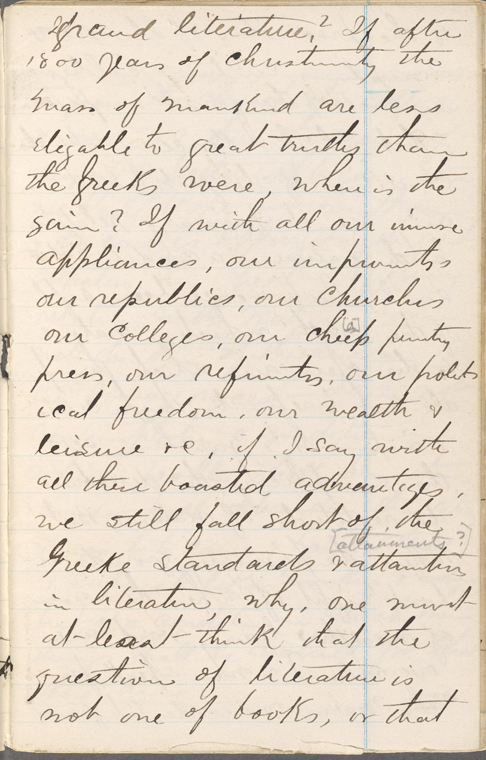 grand literature,? If after
1800 years of christianity the
mass of mankind are less
eligable to great truths than
the Greeks were, where is the
gain? If with all our
appliances, our improvmts
our republics, our Churches
our Colleges, our cheep [a]
press, our refinmts, our polit-
ical freedom, our wealth &
leisure &c, if I say with
all these boasted advantages,
we still fall short of the
Greeke standards & [attainments?]
in literature, why, one must
at least think that the
question of literature is
not one of books, or that